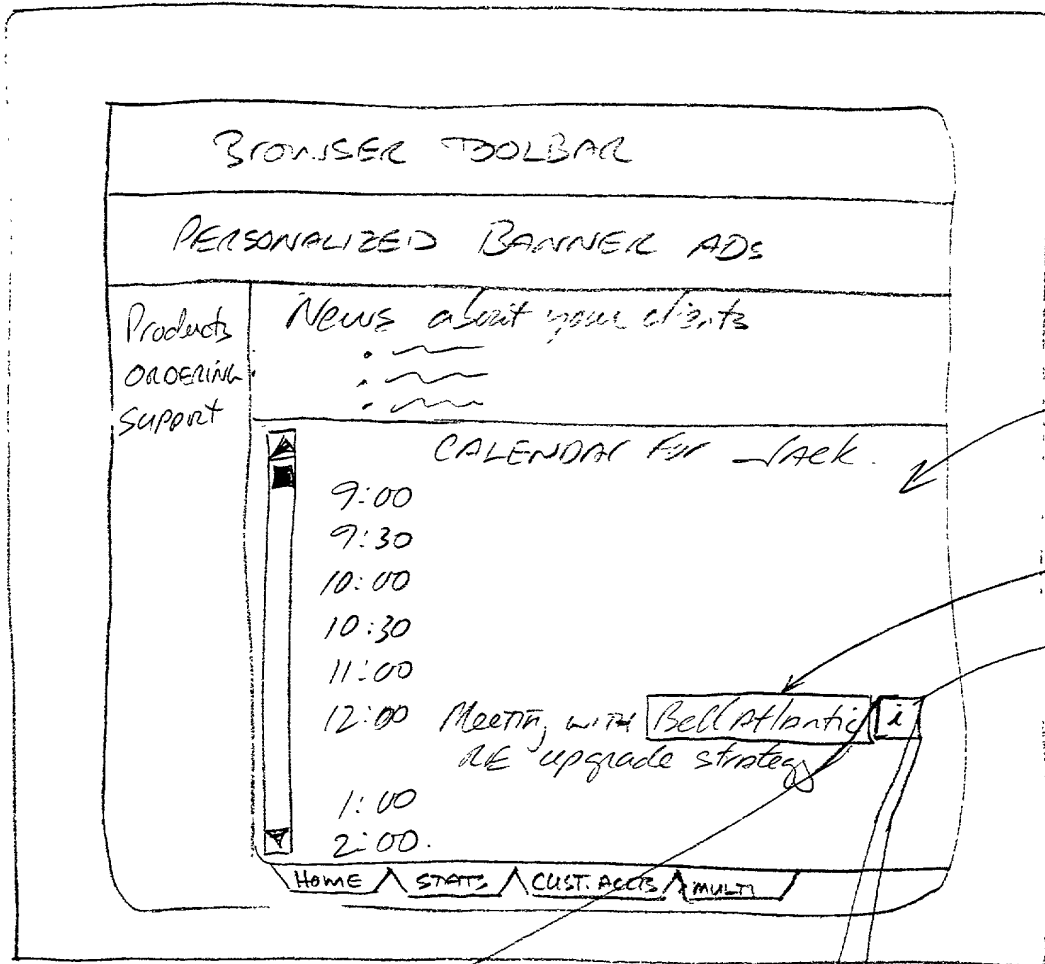 BROWSER TOOLBAR
PERSONALIZED BANNER ADs
Products
ORDERING
Support
News about your clients
CALENDAR For Jack.
9:00
9:30
10:00
10:30
11:00
12:00 Meeting with Bell Atlantic i
RE upgrade strategy
1:00
2:00.
HOME STATS CUST. ACCTS MULTI